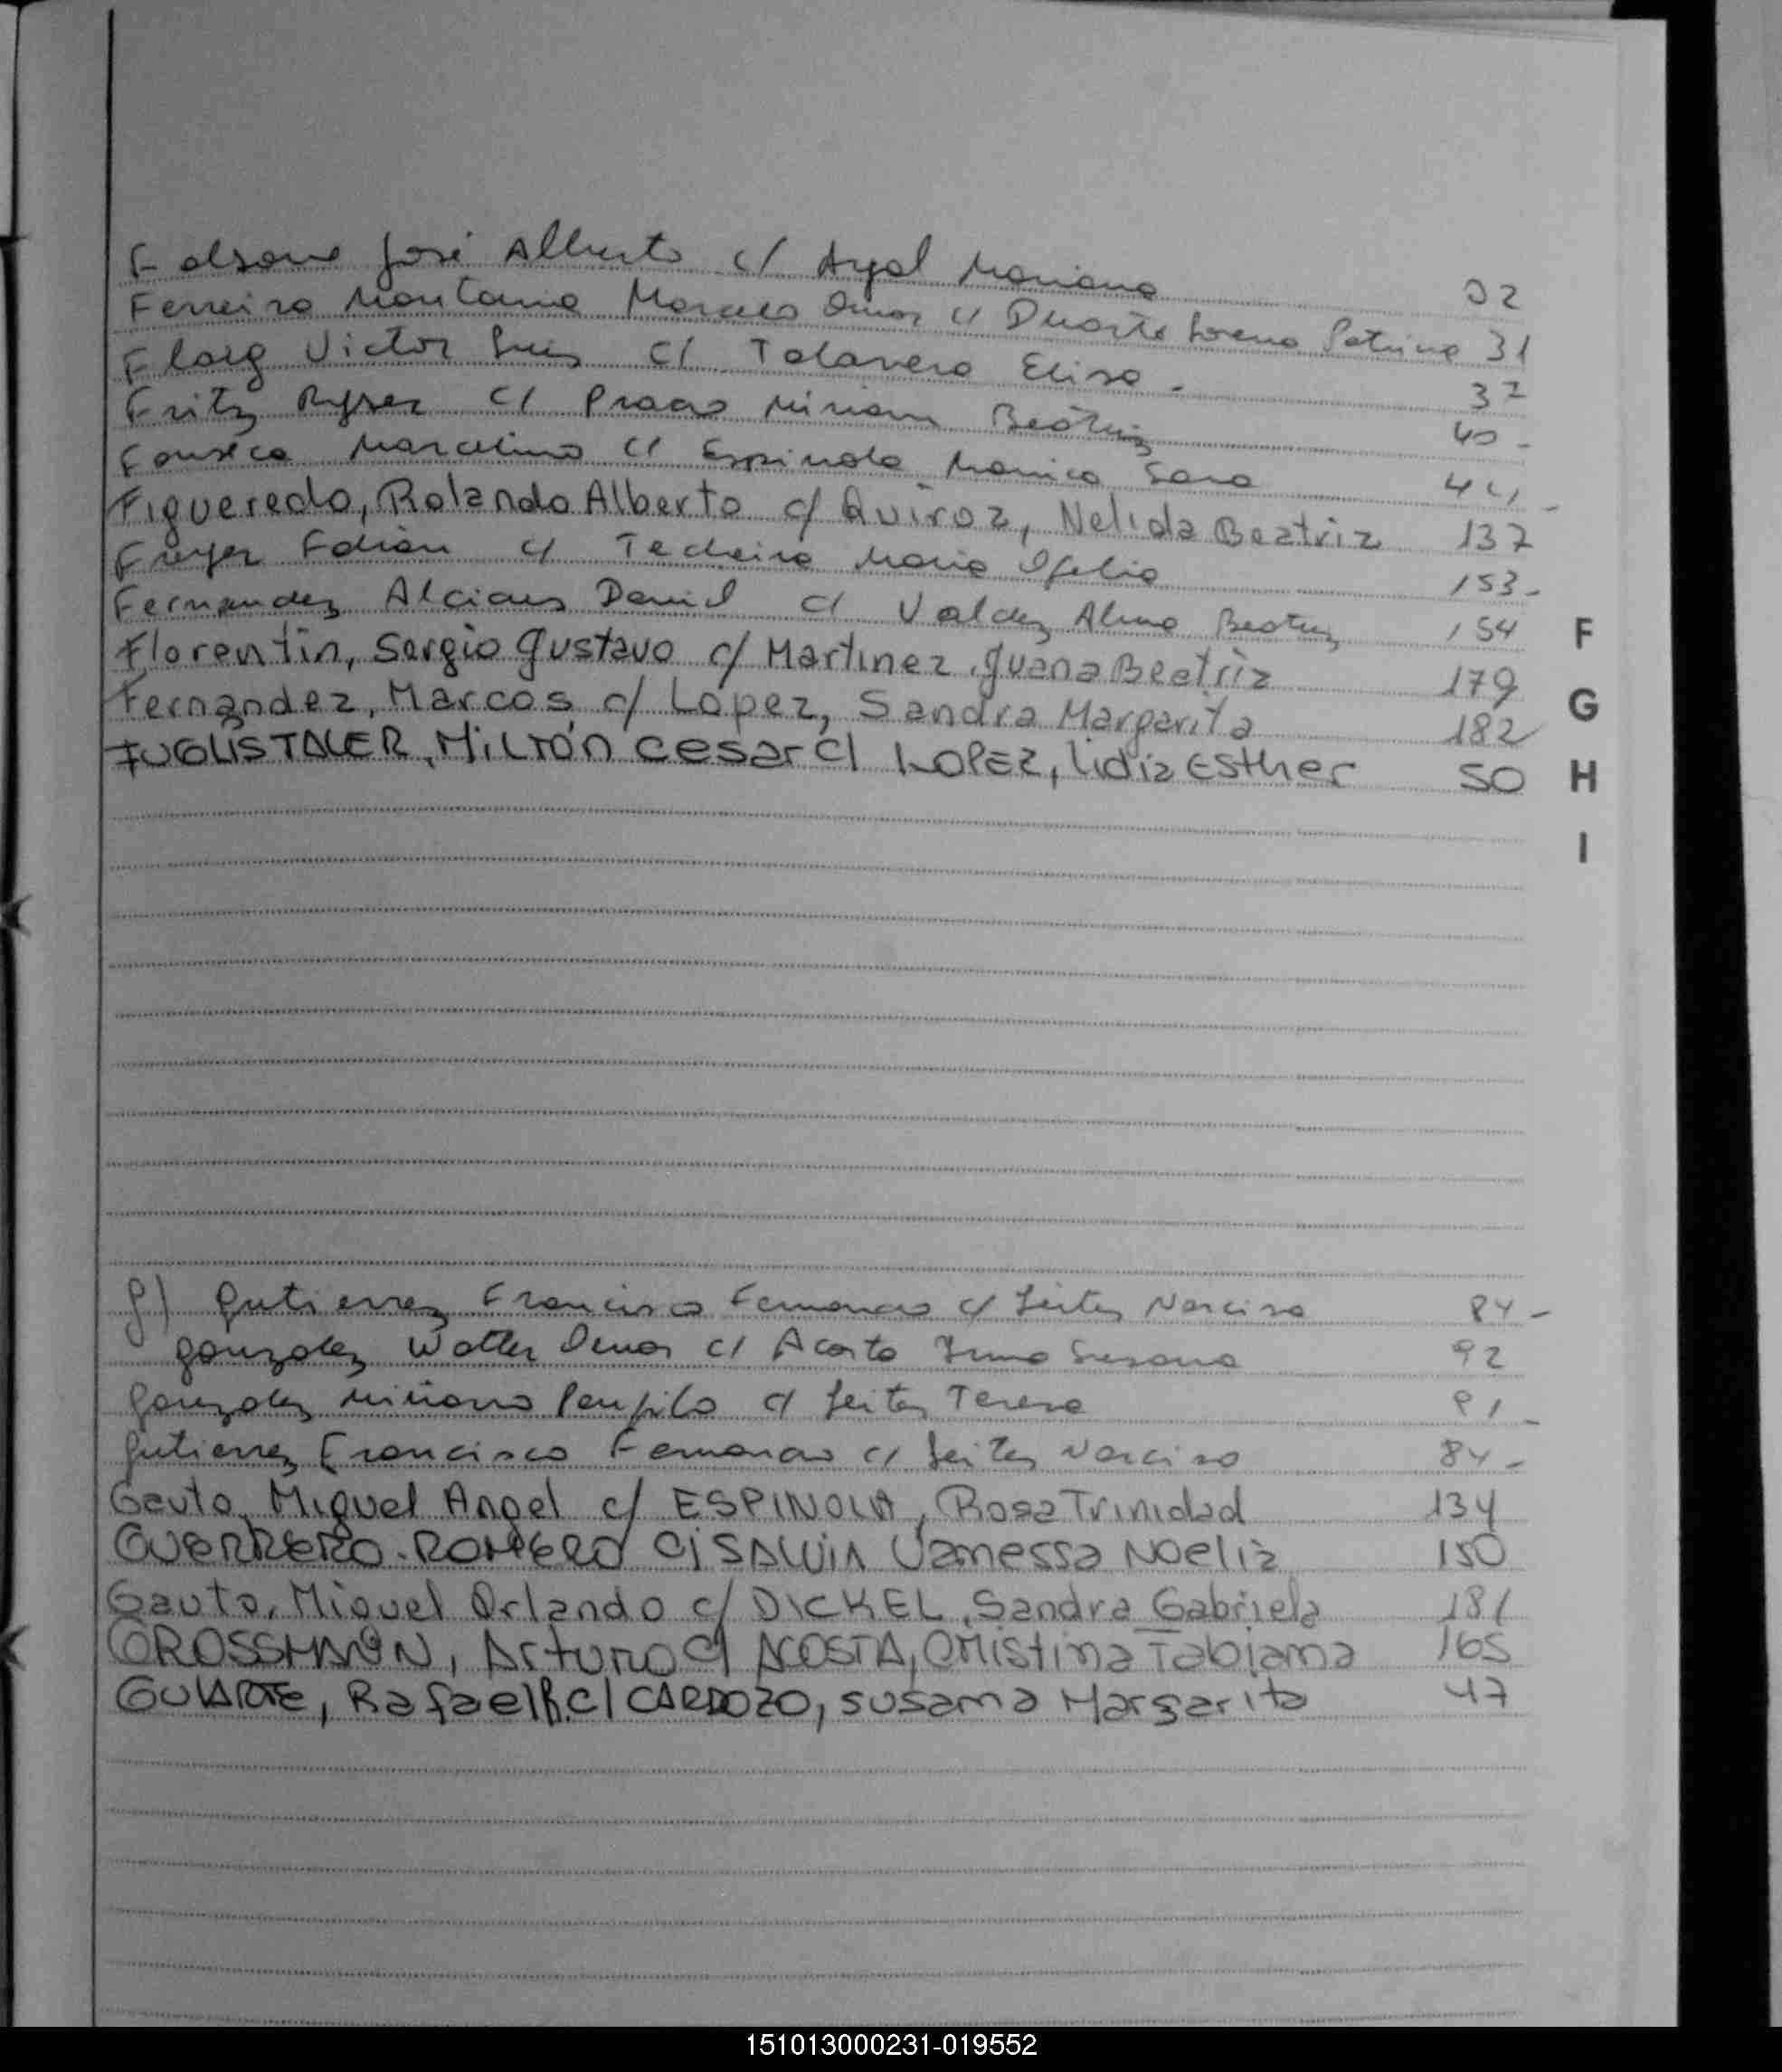 Falsone José Alberto c/ Ayal Mariana 02
Ferreira Montania Marcelo Omar c/ Duarte Lorena Patricia 31
Flaig Victor Luis c/ Talavera Elisa - 37
Fritz Ryser c/ Prado Miriam Beatriz 40 -
Fonseca Marcelino c/ Espinola Monica Sara 44 -
Figueredo, Rolando Alberto c/ Quiroz, Nelida Beatriz 137
Freyer Fabian c/ Techeira Maria Ofelia 153 -
Fernandez Alcides Daniel c/ Valdez Alma Beatriz 154
F
Florentin, Sergio Gustavo c/ Martinez, Juana Beatriz 179
G
Fernandez, Marcos c/ Lopez, Sandra Margarita 182
FUGLISTALER, MiLTÓN cesar c/ LOPEZ, lidia Esther 50
H
I
g) Gutierrez Francisco Fernando c/ Leites Narcisa 84 -
Gonzalez Walter Omar c/ Acosta Irma Susana 92
Gonzalez Miñarro Panfilo c/ Leites Teresa 91 -
Gutierrez Francisco Fernando c/ Leites Narcisa 84 -
Gauto, Miguel Angel c/ ESPINOLA, Rosa Trinidad 134
GUERRERO. ROMERO c/ SALVIA Vanessa Noelia 150
Gauto, Miguel Orlando c/ DICKEL, Sandra Gabriela 181
GROSSMANN, Arturo c/ ACOSTA, Cristina Fabiana 165
GULARTE, Rafael R. c/ CARDOZO, susana Margarita 47
151013000231-019552